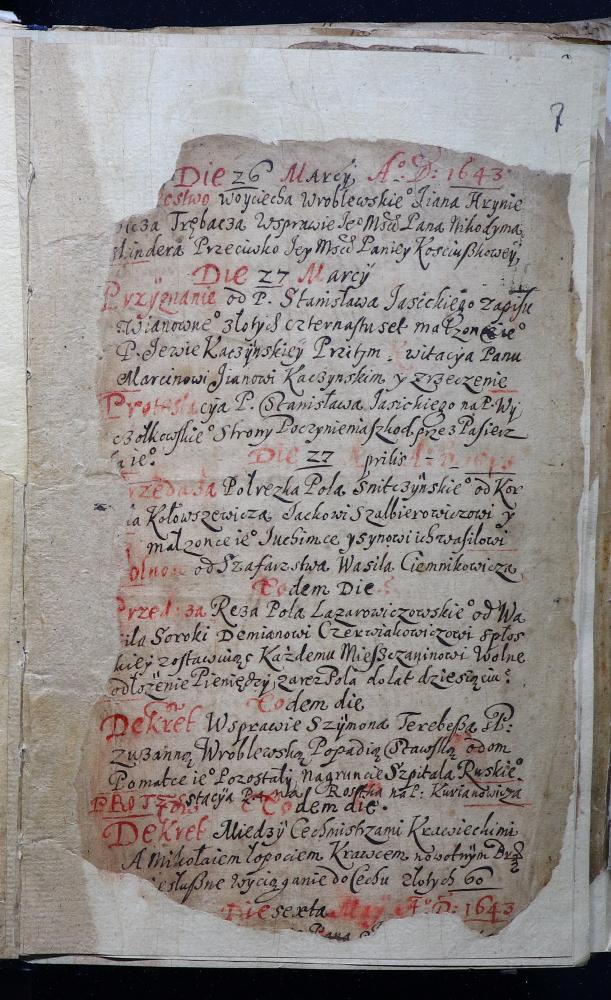 7
Die 26 Marcÿ, A⁰: D: 1643
Woyciecha Wroblewskie⁰ Jiana Hrynie
Trębacza Wsprawie Je⁰ Mści Pana Nikodyma
Przeciwko Jey Mści Paniey Kosciußkowey,
Die 27 Marcÿ
Przÿznanie od P. Stanisława Jasickiego zapisu
Wianowne⁰ złotych czternastu set małzonce ie⁰
P. Jewie Kaczÿnskieÿ Przitÿm Kwitacÿa Panu
Marcinowi Jianowi Kaczynskim y zrzeczenie
Protestacÿa P. Stanisława Jasickiego na P. Wy
czołkowskie⁰ Strony Poczynienia szkod przez Pasierz
ie⁰.
Die 27 Aprilis A⁰ D
Połrezka Pola Snitczÿnskie⁰ od Kor
Kołowszewicza Jackowi Szalbierowiczowi ÿ
małzonce ie⁰ Juchimce y synowi ich Wasilowi
od Szafarstwa Wasila Ciemnikowicza
Eodem Die.
Reza Pola Lazarowiczowskie⁰ od Wa
sila Soroki Demianowi Czerwiakowiczowi spłos
kiey zostawuiąc Kazdemu Mieszczaninowi Wolne
odłożenie Pieniędzy zarez Pola do lat dziesięciu.
Eodem die
Dekret Wsprawie Szÿmona Terebeßa SP:
Zuzanną Wroblewską Popadią Stawską o dom
Pomatce ie⁰ Pozostałÿ Nagruncie Szpitala Ruskie⁰
PROTESstacÿa Pana Rostka na P: Kurianowicza
Eodem die.
Dekret Miedzÿ Cechmistrzami Krawieckimi
A Mikołaiem łopociem Krawcem nowotnÿm
iesłußne Wyciąganie do Cechu złotych 60
Die sexta Maÿ A⁰: D: 1643
Pana